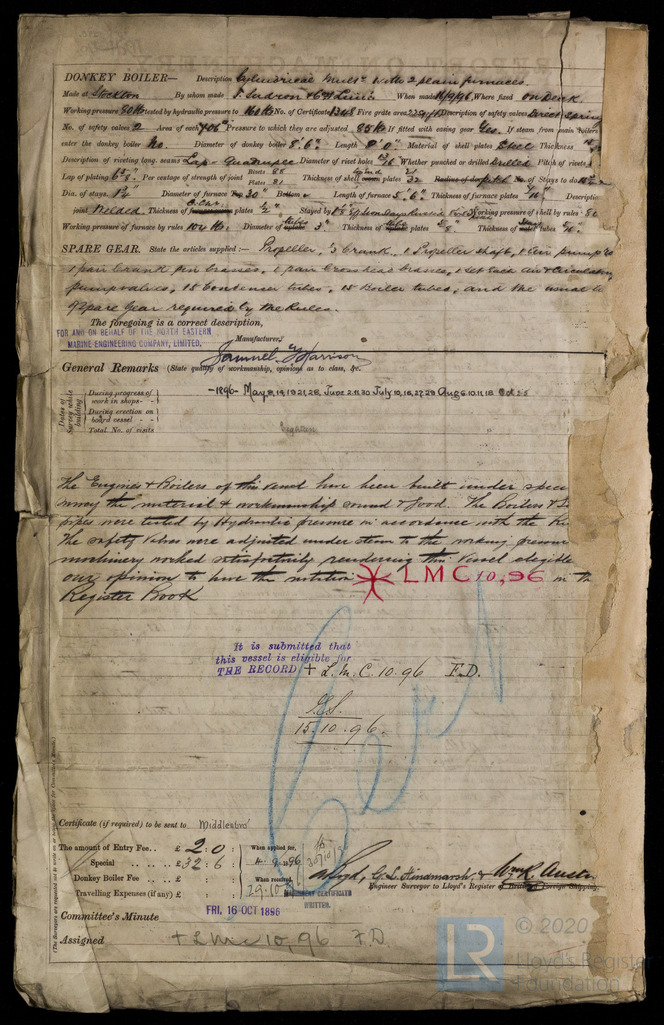 DONKEY BOILER— Description Cylindrical Mult. with 2 plain furnaces.
Made at Stockton By whom made When made 11/9/96 Where fixed on Deck
Working pressure 80 lb tested by hydraulic pressure to 160 lb No. of Certificate 1348 Fire grate area Description of safety valves Direct Spring
No. of safety valves 2 Area of each 7.06" Pressure to which they are adjusted 85 lb If fitted with easing gear Yes. If steam from main boilers
enter the donkey boiler No. Diameter of donkey boiler 8'.6" Length 9'.0" Material of shell plates Steel Thickness
Description of riveting long. seams Lap - Quadruple Diameter of rivet holes Whether punched or drilled drilled Pitch of rivets
Lap of plating Per centage of strength of joint Rivets 88 Plates 21 Thickness of shell plates Radius of do. No. of Stays to do.
Dia. of stays. 1¾" Diameter of furnace Top 30" Bottom Length of furnace 5'.6" Thickness of furnace plates Description
joint Welded. Thickness of plates ½" Stayed by Working pressure of shell by rules 80
Working pressure of furnace by rules 104 lbs. Diameter of 3" Thickness of Thickness of tubes
SPARE GEAR. State the articles supplied:— Propeller, ⅓ Crank, 1 Propeller shaft, 1 Air pump
1 pair Crank pin brasses, 1 pair Crosshead brasses, 1 set each Air & Circulating
pump valves, 15 Condenser tubes, 15 Boiler tubes, and the usual
of spare gear required by the Rules.
The foregoing is a correct description,
FOR AND ON BEHALF OF THE NORTH EASTERN
MARINE ENGINEERING COMPANY, LIMITED. Manufacturer.
Samuel Harrison
General Remarks (State quality of workmanship, opinions as to class, &c.
Dates of Survey while building
During progress of work in shops - - -1896- May 8,14,19,21,28, June 2,11,30 July 10,16,27,29 Aug 6,10,11,18 Oct
During erection on board vessel - - -
Total No. of visits
The Engines & Boilers of this Vessel have been built under spec
survey the material & workmanship sound & good. The Boilers & S
pipes were tested by Hydraulic pressure in accordance with the Ru
The safety valves were adjusted under steam to the working pressure
machinery worked satisfactorily rendering this vessel eligible
our opinion to have the notation + LMC 10,96 in the
Register Book
It is submitted that
this vessel is eligible for
THE RECORD + L.M.C. 10.96 F.D.
15.10.96.
Cert
Certificate (if required) to be sent to Middlesbro'
The amount of Entry Fee . . £ 2:0: When applied for,
Special . . . . . £ 32:6: 14.9.1896
Donkey Boiler Fee . . . £ : : When received,
Travelling Expenses (if any) £ : : 29.10
MACHINERY CERTIFICATE
WRITTEN.
G. L. Hindmarsh, & Wm. R. Austin
Engineer Surveyor to Lloyd's Register of British & Foreign Shipping.
Committee's Minute FRI. 16 OCT 1896
Assigned + LMC 10,96 F.D.
LR
© 2020
Lloyd's Register
Foundation